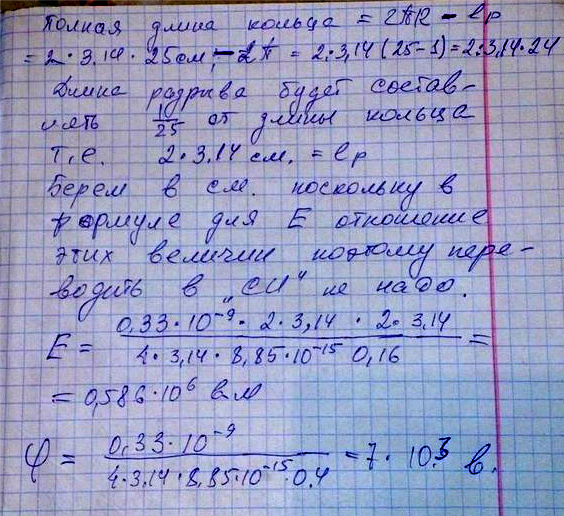 Полная длина кольца = 2πR - lр
= 2·3,14·25см, - 2π = 2·3,14(25-1) = 2·3,14·24
Длина разрыва будет состав-
лять 1/25 от длины кольца
т.е. 2·3.14 см. = lр
Берем в см. поскольку в
формуле для Е отношение
этих величин поэтому пере-
водить в „СИ" не надо.
E = 0,33·10⁻⁹·2·3,14·2·3,14 / 4·3,14·8,85·10⁻¹⁵ 0,16 =
= 0,586·10⁶ в.м
φ = 0,33·10⁻⁹ / 4·3,14·8,85·10⁻¹⁵·0,4 = 7·10³ в.